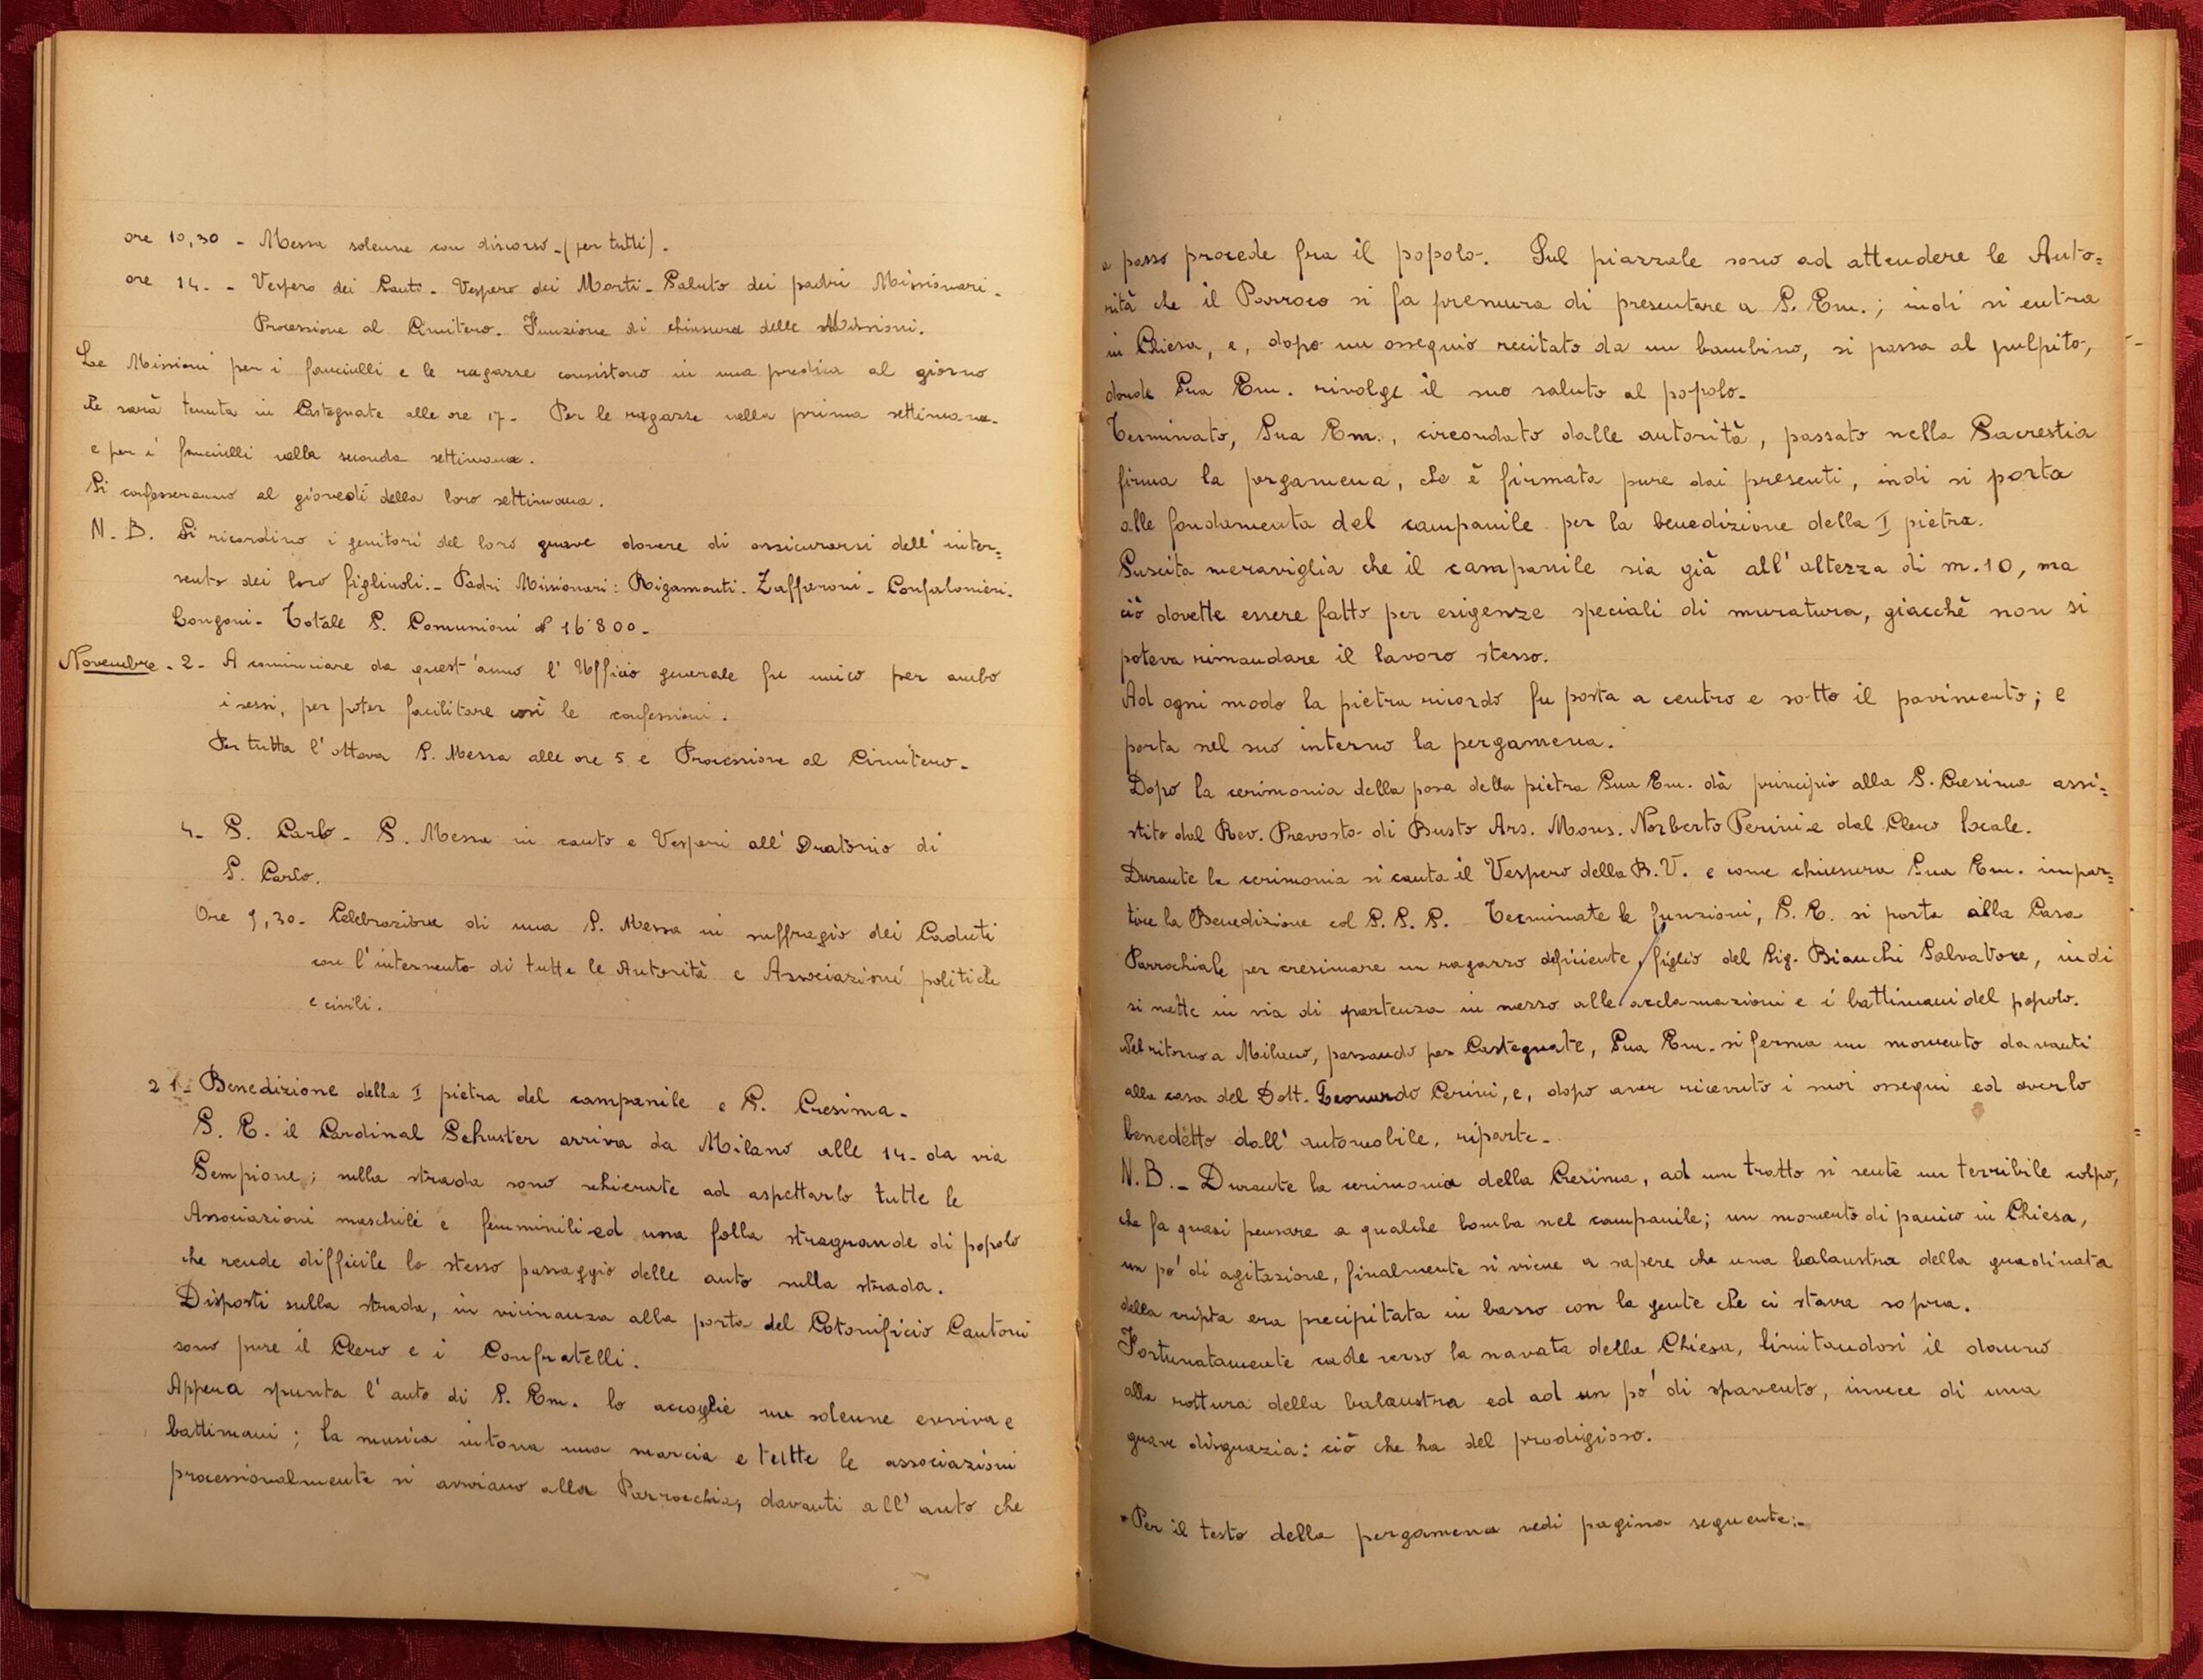 ore 10,30 - Messa solenne con discorso - (per tutti).
ore 14. - Vespero dei Santi - Vespero dei Morti - Saluto dei padri Missionari -
Processione al Cimitero. Funzione di chiusura delle Missioni.
Le Missioni per i fanciulli e le ragazze consistono in una predica al giorno
che sarà tenuta in Castegnate alle ore 17 - Per le ragazze nella prima settimana
e per i fanciulli nella seconda settimana.
Si confesseranno al giovedì della loro settimana.
N. B. Si ricordino i genitori del loro grave dovere di assicurarsi dell' inter=
vento dei loro figliuoli. - Padri Missionari: Rigamonti - Zafferoni - Confalonieri -
Longoni - Totale S. Comunioni N 16'800 -
Novembre - 2 - A cominciare da quest'anno l' Ufficio generale fu unico per ambo
i sessi, per poter facilitare così le confessioni.
Per tutta l' ottava S. Messa alle ore 5 e Processione al Cimitero -
4 - S. Carlo - S. Messa in canto e Vesperi all' Oratorio di
S. Carlo.
Ore 9,30 - Celebrazione di una S. Messa in suffragio dei Caduti
con l'intervento di tutte le Autorità e Associazioni politiche
e civili.
21 - Benedizione della I pietra del campanile e S. Cresima -
S. E. il Cardinal Schuster arriva da Milano alle 14 - da via
Sempione; sulla strada sono schierate ad aspettarlo tutte le
Associazioni maschili e femminili ed una folla stragrande di popolo
che rende difficile lo stesso passaggio delle auto sulla strada.
Disposti sulla strada, in vicinanza alla porta del Cotonificio Cantoni
sono pure il Clero e i Confratelli.
Appena spunta l' auto di S. Em. lo accoglie un solenne evviva e
battimani; la musica intona una marcia e tutte le associazioni
processionalmente si avviano alla Parrocchia, davanti all' auto che
a passo procede fra il popolo. Sul piazzale sono ad attendere le Auto=
rità che il Parroco si fa premura di presentare a S. Em.; indi si entra
in Chiesa, e, dopo un ossequio recitato da un bambino, si passa al pulpito,
donde Sua Em. rivolge il suo saluto al popolo -
Terminato, Sua Em., circondato dalle autorità, passato nella Sacrestia
firma la pergamena, che è firmata pure dai presenti, indi si porta
alle fondamenta del campanile per la benedizione della I pietra.
Suscita meraviglia che il campanile sia già all' altezza di m. 10, ma
ciò dovette essere fatto per esigenze speciali di muratura, giacchè non si
poteva rimandare il lavoro stesso.
Ad ogni modo la pietra ricordo fu posta a centro e sotto il pavimento; e
porta nel suo interno la pergamena.
Dopo la cerimonia della posa della pietra Sua Em. dà principio alla S. Cresima assi=
stito dal Rev. Prevosto di Busto Ars. Mons. Norberto Perini e dal Clero locale.
Durante la cerimonia si canta il Vespero della B. V. e come chiusura Sua Em. impar=
tire la Benedizione col S. S. S. - Terminate le funzioni, S. E. si porta alla Casa
Parrochiale per cresimare un ragazzo deficiente, figlio del Sig. Bianchi Salvatore, indi
si mette in via di partenza in mezzo alle acclamazioni e i battimani del popolo.
Nel ritorno a Milano, passando per Castegnate, Sua Em. si ferma un momento davanti
alla casa del Dott. Leonardo Cerini, e, dopo aver ricevuto i suoi ossequi ed averlo
benedetto dall' automobile, riparte -
N. B. - Durante la cerimonia della Cresima, ad un tratto si sente un terribile colpo,
che fa quasi pensare a qualche bomba nel campanile; un momento di panico in Chiesa,
un po' di agitazione, finalmente si viene a sapere che una balaustra della gradinata
della cripta era precipitata in basso con la gente che ci stava sopra.
Fortunatamente cade verso la navata della Chiesa, limitandosi il danno
alla rottura della balaustra ed ad un po' di spavento, invece di una
grave disgrazia: ciò che ha del prodigioso.
* Per il testo della pergamena vedi pagina seguente: -